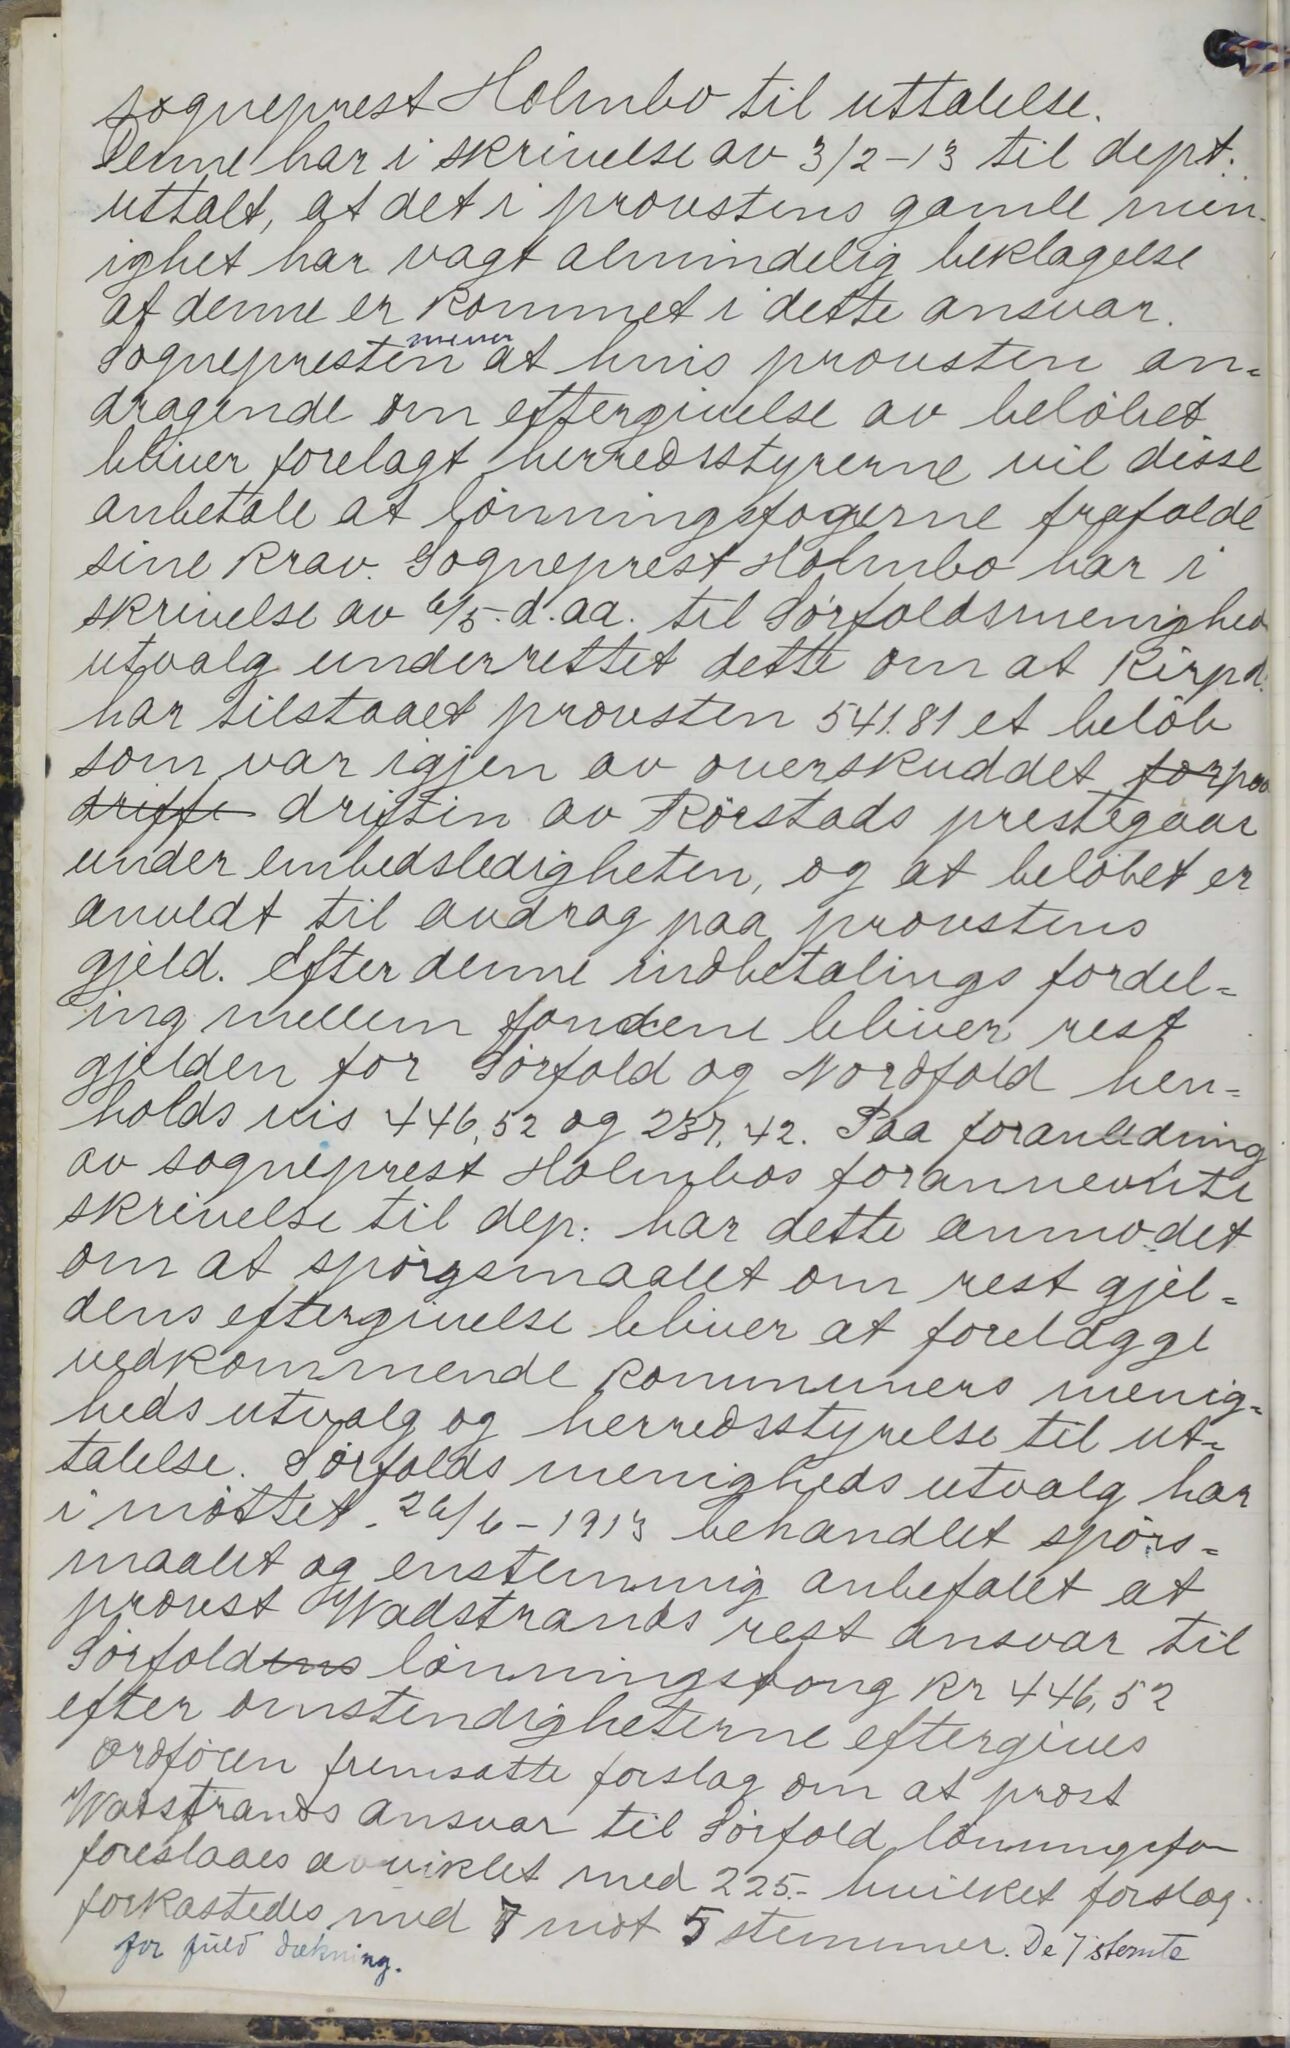 sogneprest Holmbo til uttalelse.
Denne har i skrivelse av 3/2-13 til dept.
uttalt, at det i provstens gamle men-
ighet har vagt almindelig beklagelse
at denne er kommet i dette ansvar.
Sognepresten mener at hvis provsten an=
dragende om eftergivelse av beløbet
bliver forelagt herredsstyrerne vil disse
anbetale at lønningsfogerne frafalde
sine krav. Sogneprest Holmbo har i
skrivelse av 6/5- d.aa. til Sørfoldsmenighed
utvalg underrettet dette om at Kirpd.
har tilstaaet provsten 541.81 et beløb
som var igjen av overskuddet for paa
driffe driftin av Rørstads prestegaar
under embedsledigheten, og at beløbet er
anvedt til avdrag paa provstens
gjeld. Efter denne indbetalings fordel=
ing mellem fondene bliver rest
gjelden for Sørfold og Nordfold hen=
holds vis 446,52 og 237,42. Paa foranledning
av sogneprest Holmbos forannevnte
skrivelse til dep: har dette anmodet
om at spørgsmaalet om rest gjel=
dens eftergivelse bliver at forelagge
vedkommende kommuners menig=
heds utvalg og herredsstyrelse til ut=
talelse. Sørfolds menigheds utvalg har
i møttet 26/6-1913 behandlet spørs=
maalet og enstemmig anbefalet at
provst Wadstrands rest ansvar til
Sørfoldens lønningsfong kr 446,52
efter omstendigheterne eftergives
Ordføren fremsatte forslag om at prost
Wadstrands ansvar til Sørfold lønningsfo
foreslaaes avviklet med 225.- hvilket forslag
forkastedes med 7 mot 5 stemmer. De 7 stemte
for fuld dækning.